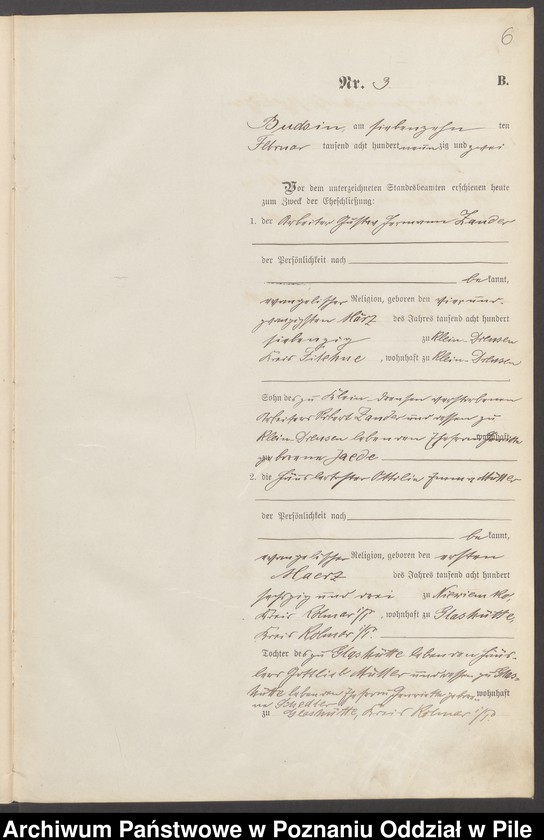 6
Nr. 3
B.
Budsin, am siebenzehn ten
Februar tausend acht hundert neunzig und zwei
Vor dem unterzeichneten Standesbeamten erschienen heute
zum Zweck der Eheschließung:
1. der Arbeiter Gustav Hermann Zander
der Persönlichkeit nach
bekannt,
evangelischer Religion, geboren den vierund-
zwanzigsten März des Jahres tausend acht hundert
siebenzig zu Klein-Drensen
Kreis Filehne, wohnhaft zu Klein-Drensen
Sohn des zu Klein-Drensen verstorbenen
Arbeiters Robert Zander und dessen zu
Klein Drensen lebenden Ehefrau wohnhaft
zu geborene Jaede
2. die Häuslertochter Ottilie Emma Müller
der Persönlichkeit nach
bekannt,
evangelischer Religion, geboren den ersten
Maerz des Jahres tausend acht hundert
sechszig und drei zu
Kreis Kolmar i/P., wohnhaft zu Glashütte,
Kreis Kolmar i/P.
Tochter des zu Glashütte lebenden Häus-
lers Gottlieb Müller und dessen zu Glas-
hütte lebenden Ehefrau Henriette gebore- wohnhaft
ne
zu Glashütte, Kreis Kolmar i/P.
Archiwum Państwowe w Poznaniu Oddział w Pile